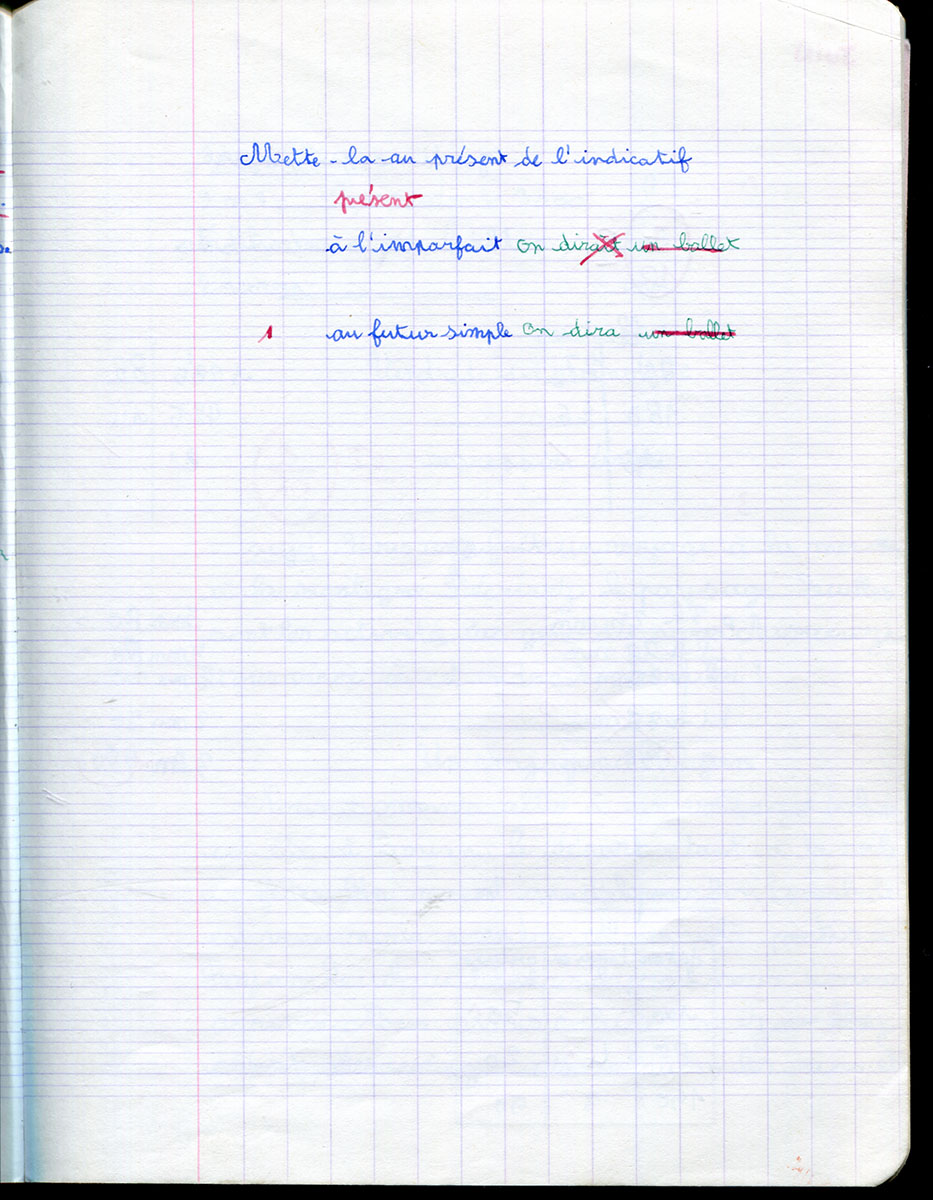 Mette-la au présent de l'indicatif
présent
à l'imparfait on dirait un ballet
1 au futur simple On dira un ballet
2